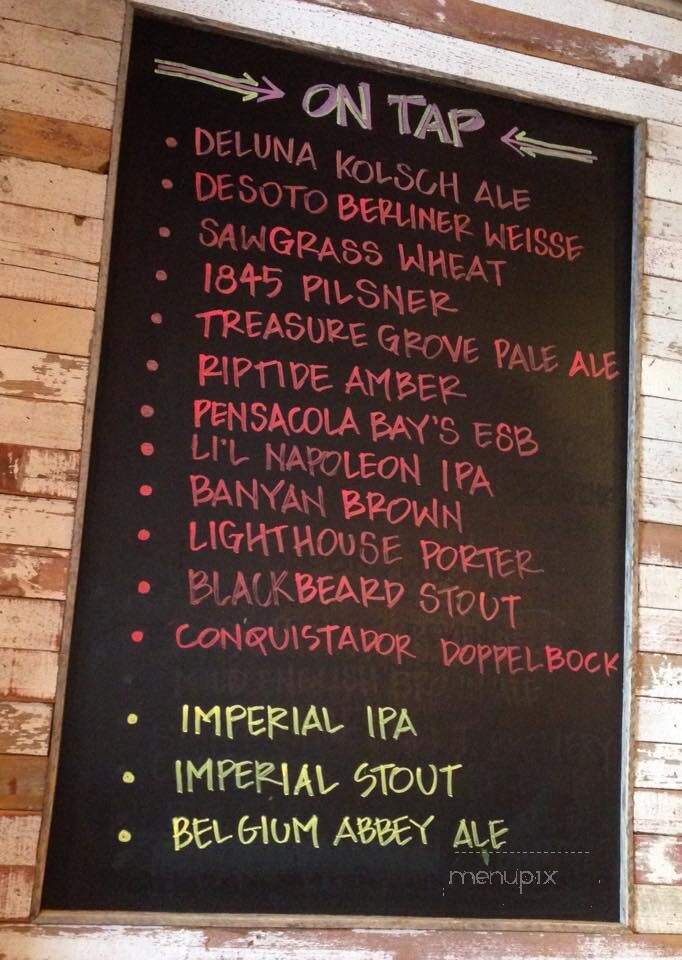 ON TAP
• DELUNA KOLSCH ALE
• DESOTO BERLINER WEISSE
• SAWGRASS WHEAT
• 1845 PILSNER
• TREASURE GROVE PALE ALE
• RIPTIDE AMBER
• PENSACOLA BAY'S ESB
• LI'L NAPOLEON IPA
• BANYAN BROWN
• LIGHTHOUSE PORTER
• BLACKBEARD STOUT
• CONQUISTADOR DOPPELBOCK
MILD ENGLISH BROWN ALE
• IMPERIAL IPA
• IMPERIAL STOUT
• BELGIUM ABBEY ALE
menupix